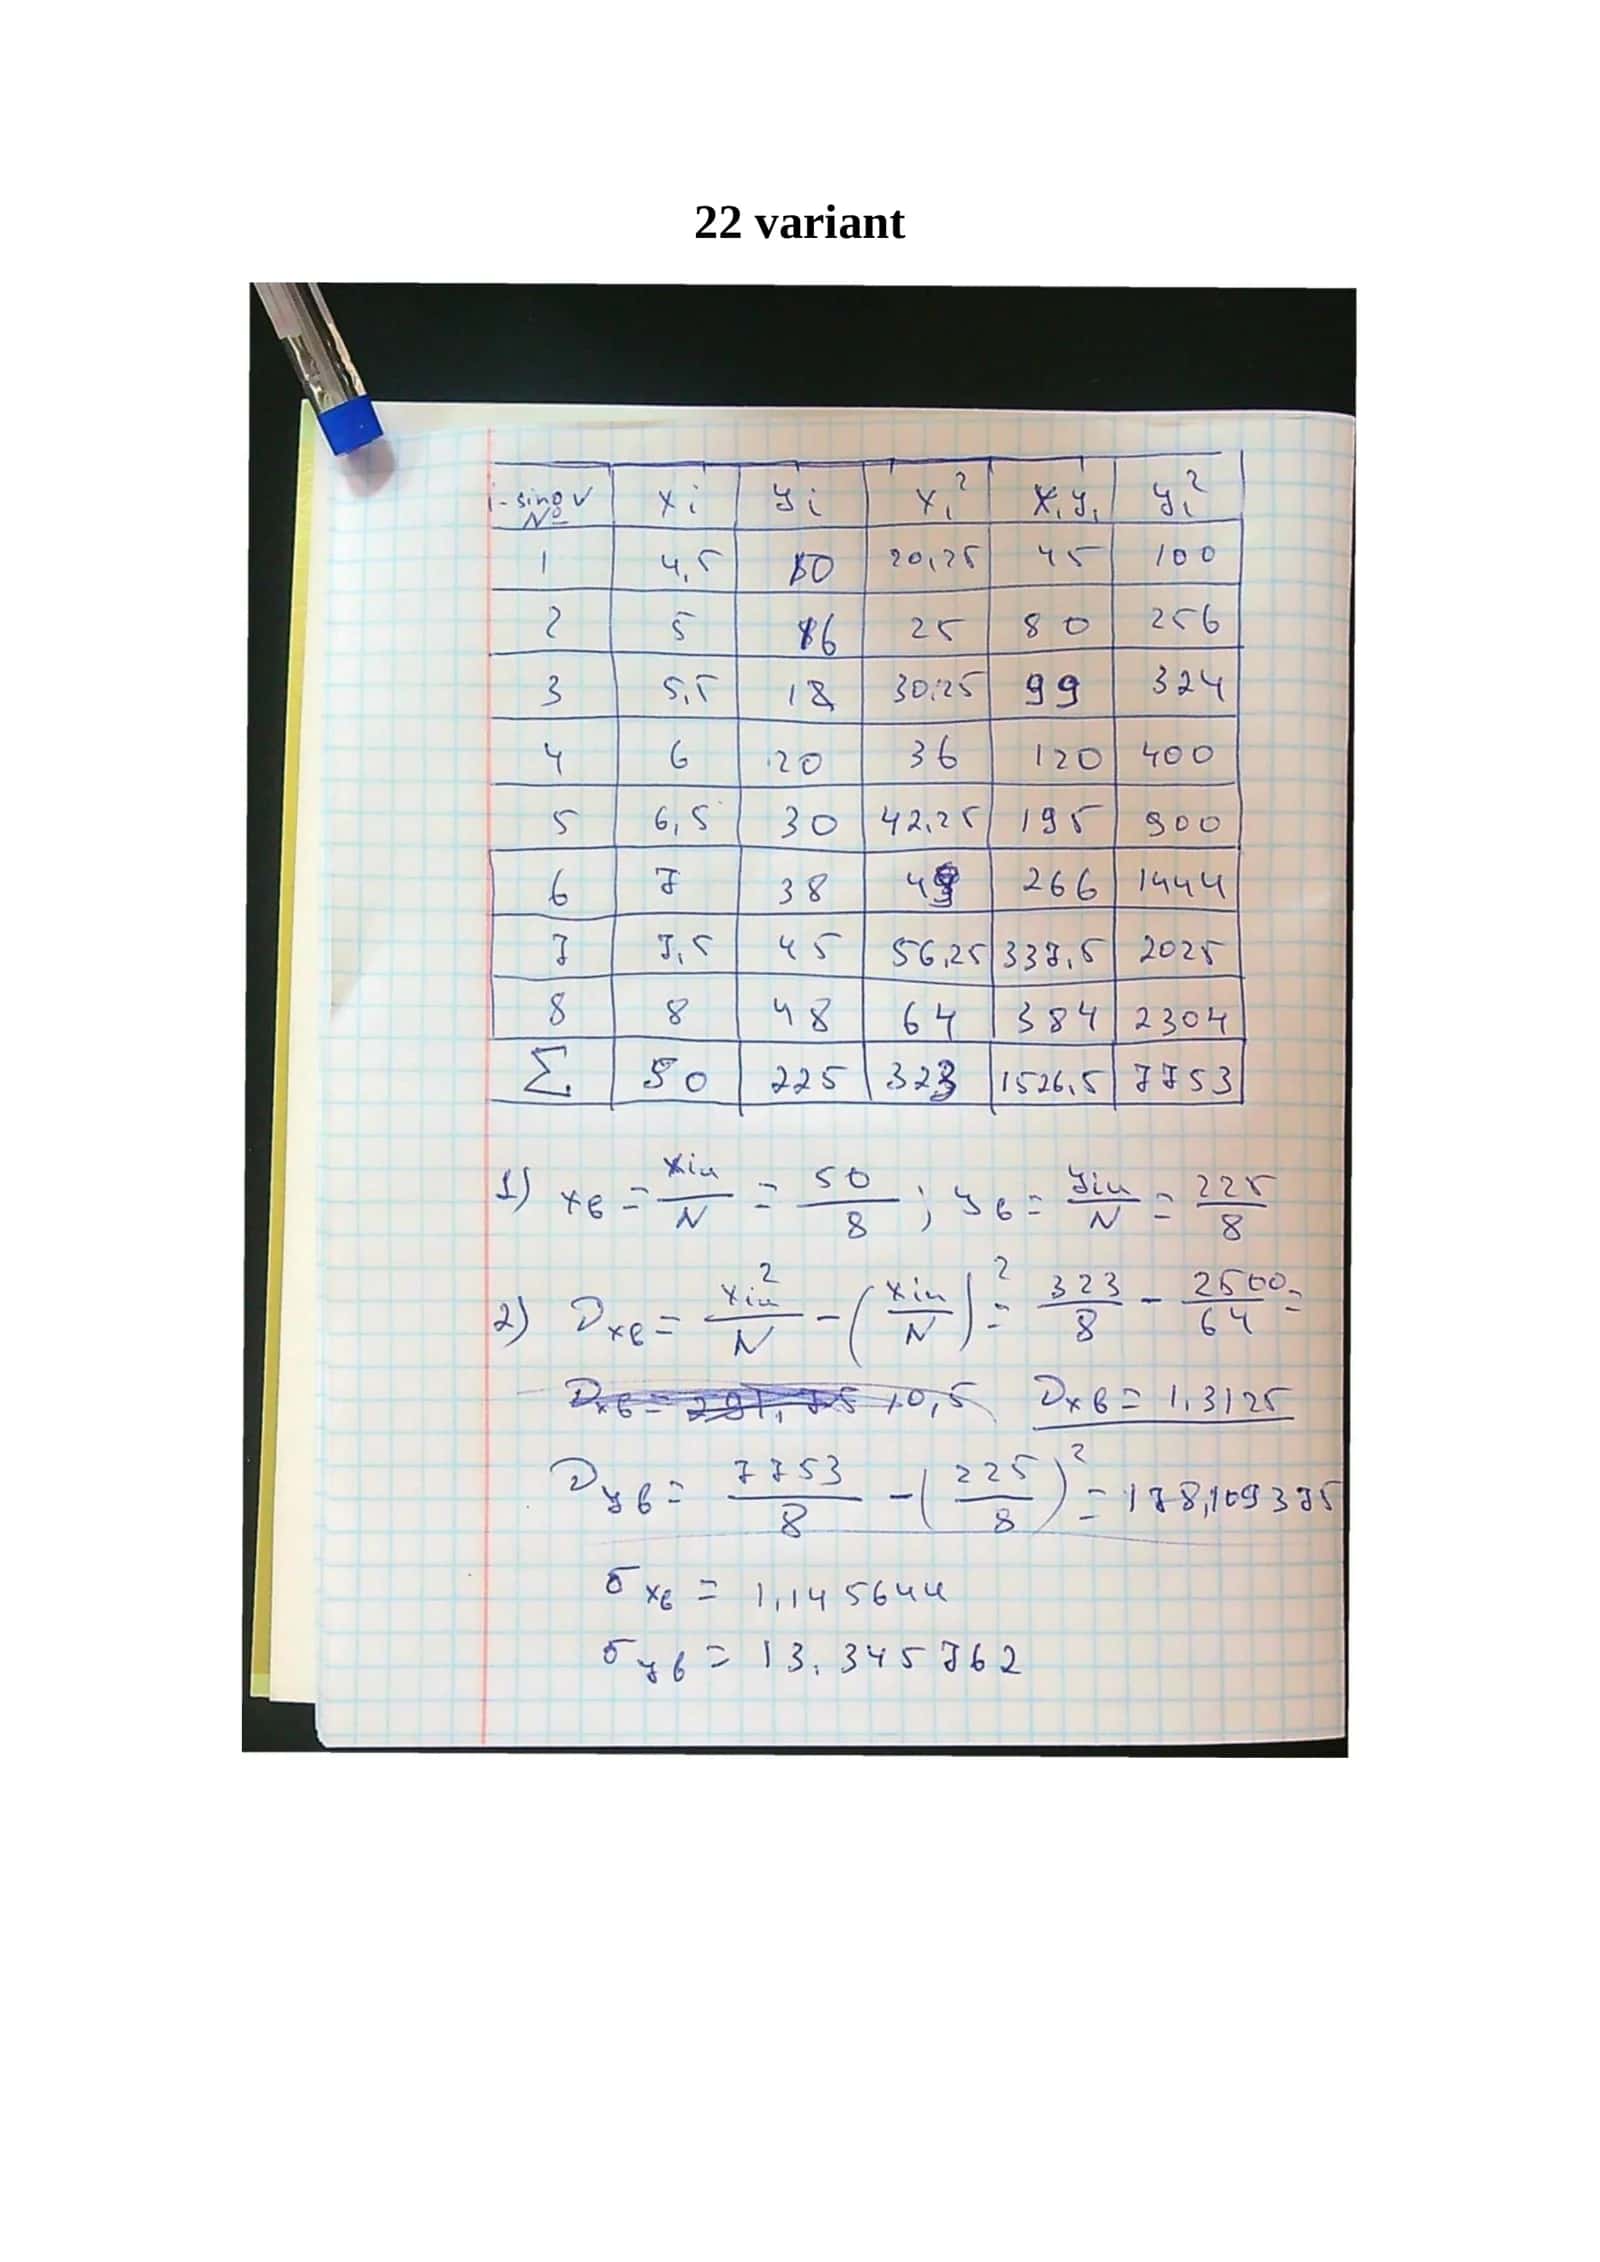 22 variant
i-sinov № xi yi xi² xiyi yi²
1 4,5 10 20,25 45 100
2 5 16 25 80 256
3 5,5 18 30,25 99 324
4 6 20 36 120 400
5 6,5 30 42,25 195 900
6 7 38 49 266 1444
7 7,5 45 56,25 337,5 2025
8 8 48 64 384 2304
Σ 50 225 323 1526,5 7753
1) xв = xiu/N = 50/8 ; yв = yiu/N = 225/8
2) Dxв = xiu²/N - (xiu/N)² = 323/8 - 2500/64 =
10,5 Dxв = 1,3125
Dyв = 7753/8 - (225/8)² = 178,109375
σxв = 1,145644
σyв = 13.345762